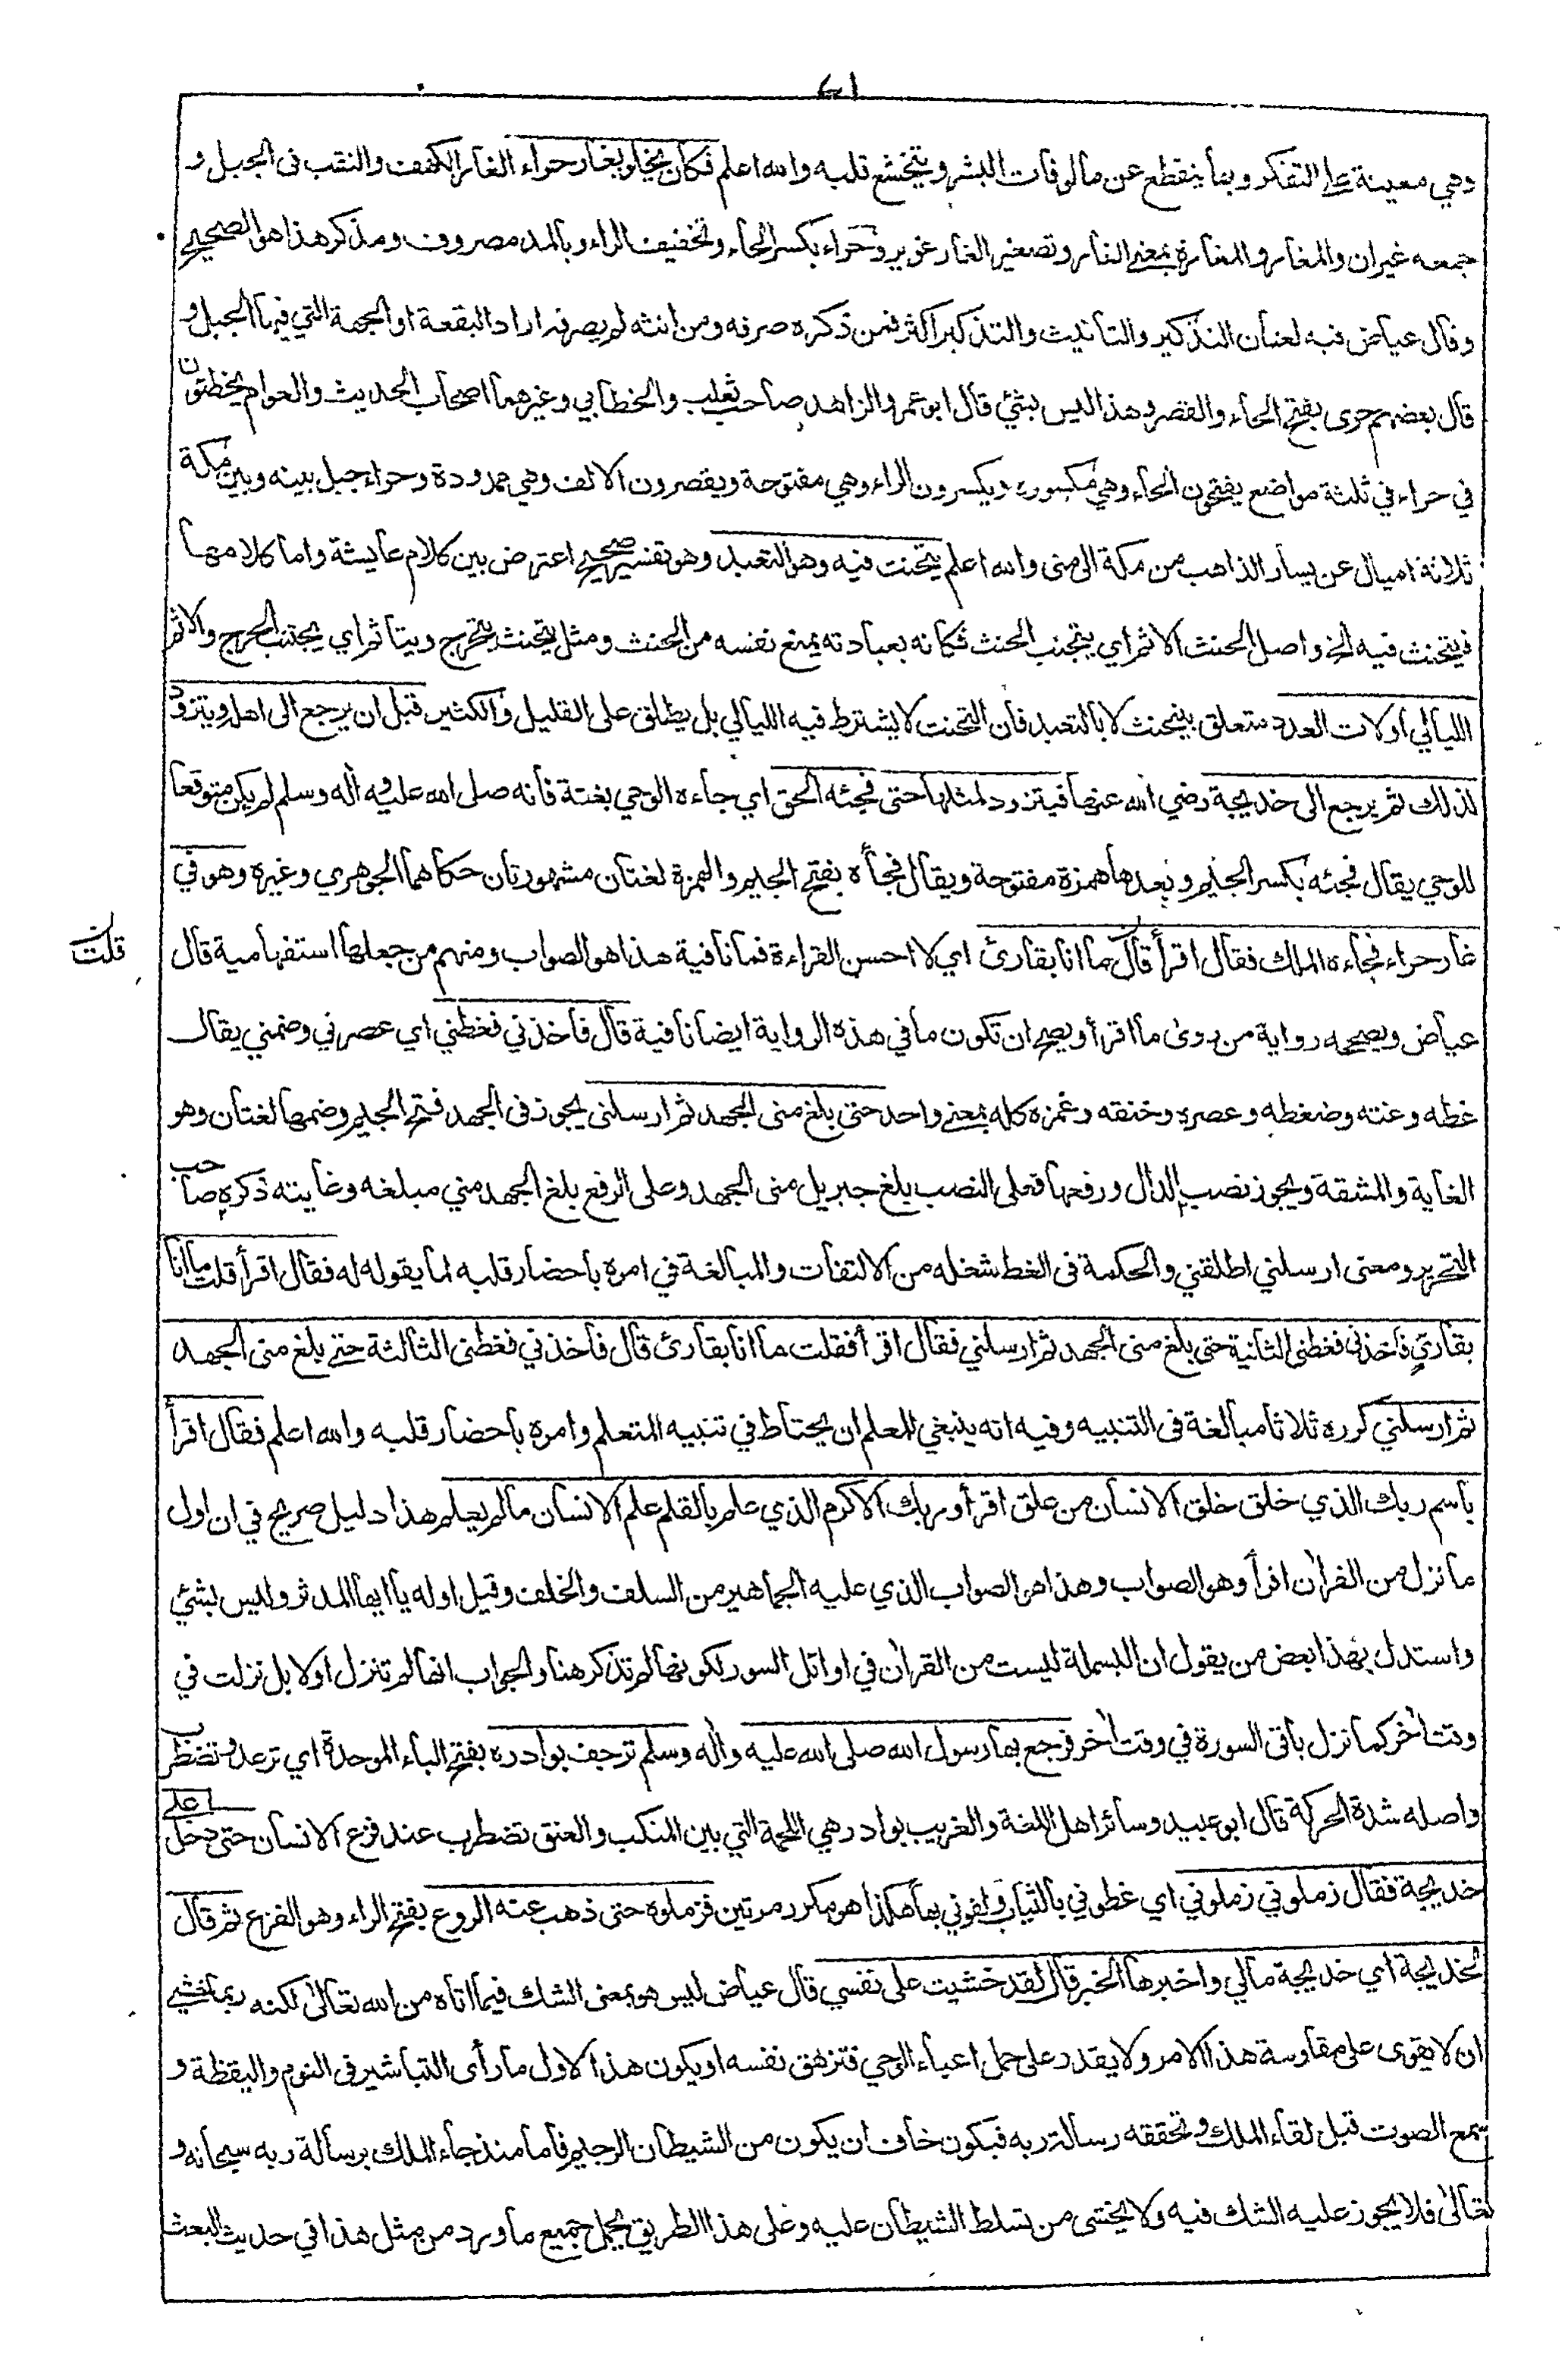 وهي معينة على التفكر وبها ينقطع عن مالوفات البشر ويتخشع قلبه والله اعلم فكان يخلو بغار حراء الغار الكهف والنقب في الجبل و
جمعه غيران والمغار والمغارة بمعنى الغار وتصغير الغار غوير وحراء بكسر الحاء وتخفيف الراء وبالمد مصروف ومذكر هذا هو الصحيح
وقال عياض فيه لغتان التذكير والتأنيث والتذكير اكثر فمن ذكره صرفه ومن انثه لم يصرفه اراد البقعة او الجهة التي فيها الجبل و
قال بعضهم حرى بفتح الحاء والقصر وهذا ليس بشئ قال ابو عمر والزاهد صاحب ثعلب والخطابي وغيرهما اصحاب الحديث والعوام يخطئون
في حراء في ثلثة مواضع يفتحون الحاء وهي مكسورة ويكسرون الراء وهي مفتوحة ويقصرون الالف وهي ممدودة وحراء جبل بينه وبين مكة
ثلاثة اميال عن يسار الذاهب من مكة الى منى والله اعلم يتحنث فيه وهو التعبد وهو تفسير صحيح اعترض بين كلام عايشة واما كلامها
فيتحنث فيه الخ واصل الحنث الاثم اي يتجنب الحنث فكانه بعبادته يمنع نفسه من الحنث ومثل يتحنث يتحرج ويتاثم اي يجتنب الحرج والاثم
الليالي اولات العدد متعلق بيتحنث لا بالتعبد فان التحنث لا يشترط فيه الليالي بل يطلق على القليل والكثير قبل ان يرجع الى اهله ويتزود
لذلك ثم يرجع الى خديجة رضي الله عنها فيتزود لمثلها حتى فجئه الحق اي جاءه الوحي بغتة فانه صلى الله عليه وآله وسلم لم يكن متوقعا
للوحي يقال فجئه بكسر الجيم وبعدها همزة مفتوحة ويقال فجأه بفتح الجيم والهمزة لغتان مشهورتان حكاهما الجوهري وغيره وهو في
غار حراء فجاءه الملك فقال اقرأ قال ما انا بقارئ اي لا احسن القراءة فما نافية هذا هو الصواب ومنهم من جعلها استفهامية قال
قلت
عياض ويصححه رواية من روى ما اقرأ ويصح ان تكون ما في هذه الرواية ايضا نافية قال فاخذني فغطني اي عصرني وضمني يقال
غطه وغته وضغطه وعصره وخنقه وغمزه كله بمعنى واحد حتى بلغ مني الجهد ثم ارسلني يجوز في الجهد فتح الجيم وضمها لغتان وهو
الغاية والمشقة ويجوز نصب الدال ورفعها فعلى النصب بلغ جبريل مني الجهد وعلى الرفع بلغ الجهد مني مبلغه وغايته ذكره صاحب
التحرير ومعنى ارسلني اطلقني والحكمة في الغط شغله من الالتفات والمبالغة في امره باحضار قلبه لما يقوله له فقال اقرأ قلت ما انا
بقارئ فاخذني فغطني الثانية حتى بلغ مني الجهد ثم ارسلني فقال اقرأ فقلت ما انا بقارئ قال فاخذني فغطني الثالثة حتى بلغ مني الجهد
ثم ارسلني كرره ثلاثا مبالغة في التنبيه وفيه انه ينبغي للمعلم ان يحتاط في تنبيه المتعلم وامره باحضار قلبه والله اعلم فقال اقرأ
باسم ربك الذي خلق خلق الانسان من علق اقرأ وربك الاكرم الذي علم بالقلم علم الانسان مالم يعلم هذا دليل صريح في ان اول
ما نزل من القرآن اقرأ وهو الصواب وهذا هو الصواب الذي عليه الجماهير من السلف والخلف وقيل اوله يا ايها المدثر وليس بشئ
واستدل بهذا بعض من يقول ان البسملة ليست من القرآن في اوائل السور لكونها لم تذكر هنا والجواب انها لم تنزل اولا بل نزلت في
وقت آخر كما نزل باقي السورة في وقت آخر فرجع بها رسول الله صلى الله عليه وآله وسلم ترجف بوادره بفتح الباء الموحدة اي ترعد وتضطرب
واصله شدة الحركة قال ابو عبيد وسائر اهل اللغة والغريب بوادر هي اللحمة التي بين المنكب والعنق تضطرب عند فزع الانسان حتى دخل على
خديجة فقال زملوني زملوني اي غطوني بالثياب ولفوني بها هكذا هو مكرر مرتين فزملوه حتى ذهب عنه الروع بفتح الراء وهو الفزع ثم قال
لخديجة اي خديجة مالي واخبرها الخبر قال لقد خشيت على نفسي قال عياض ليس هو بمعنى الشك فيما اتاه من الله تعالى لكنه ربما خشي
ان لا يقوى على مقاومة هذا الامر ولا يقدر على حمل اعباء الوحي فتزهق نفسه او يكون هذا الاول ما رأى التباشير في النوم واليقظة و
سمع الصوت قبل لقاء الملك وتحققه رسالة ربه فيكون خاف ان يكون من الشيطان الرجيم فاما منذ جاء الملك برسالة ربه سبحانه و
تعالى فلا يجوز عليه الشك فيه ولا يخشى من تسلط الشيطان عليه وعلى هذا الطريق يحمل جميع ما ورد من مثل هذا في حديث البعث